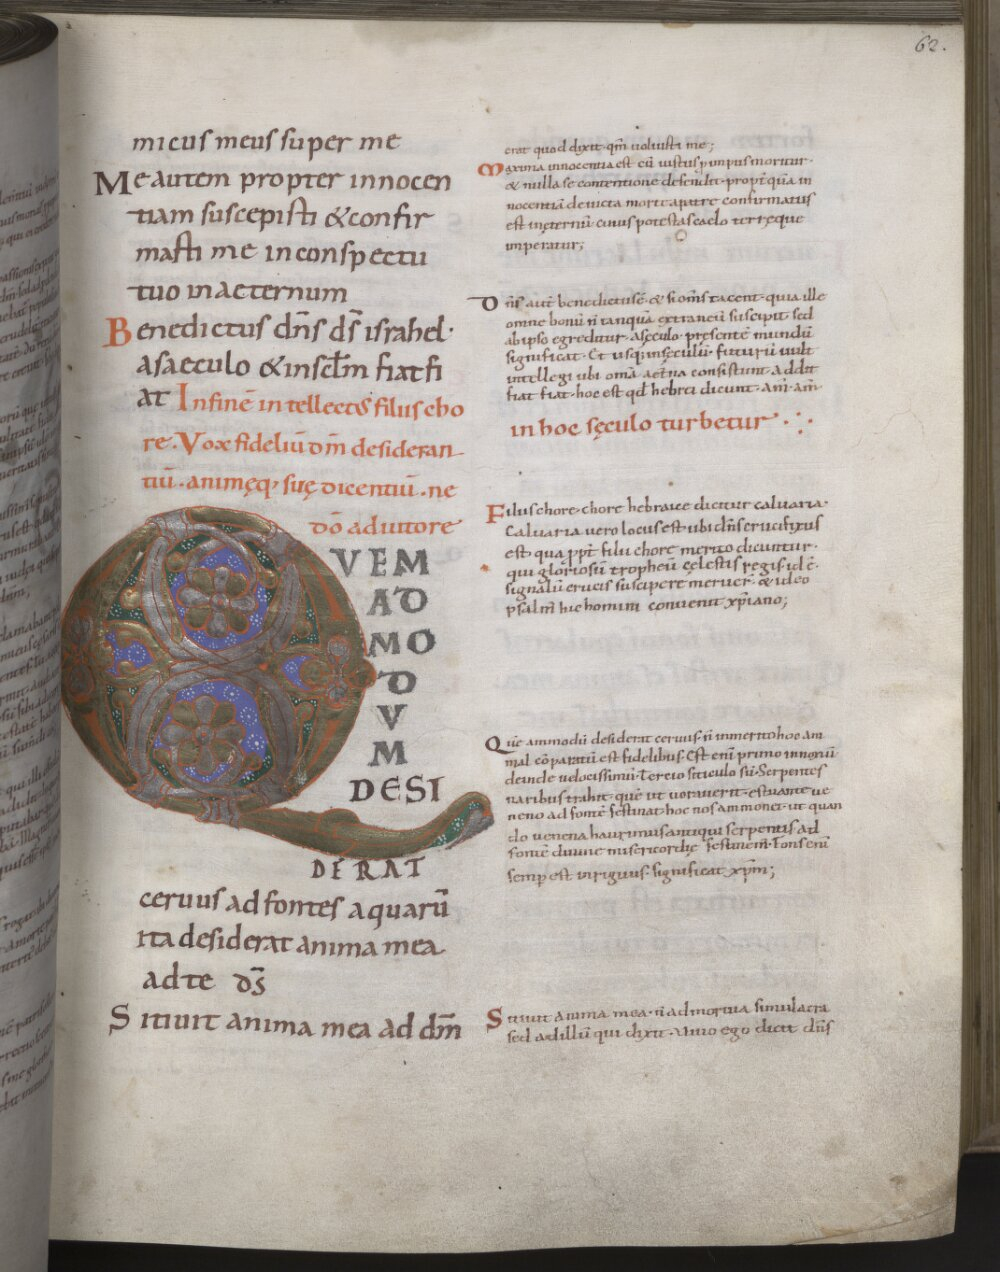 62.
micus meus super me
Me autem propter innocen
tiam suscepisti & confir
masti me in conspectu
tuo in aeternum
Benedictus dn̄s ds̄ israhel·
a saeculo & in sc̄lm fiat fi
at In finē intellectꝰ filiis cho
re· Vox fideliū dm̄ desideran
tiū· animęq; suę dicentiū· ne
dō aduttore
QVEM
AD
MO
D
V
M
DESI
DERAT
ceruus ad fontes aquarū
ita desiderat anima mea
ad te ds̄
Sitiuit anima mea ad dm̄
erat quod dixit· qm̄ uoluisti me;
Maxima innocentia est cū iustus p̱ impiis moritur·
& nulla se contentione defendit· propt̄ quā in
nocentiā deuicta morte a patre confirmatus
est in eternū· cuius potestas caelo terręque
imperatur;
Dn̄s aut̄ benedictus ē· & si om̄s tacent· quia ille
omne bonū n̄ tanquā extraneū suscipit· sed
ab ipso egreditur· a sęculo· presentē mundū
significat· Et usq; in sęculū· futurū uult
intellegi ubi om̄a aet̄na consistunt· addit
fiat fiat· hoc est qd̄ hebrei dicunt· am̄· am̄·
in hoc sęculo turbetur
Filiis chore· chore hebraice dicitur caluaria·
Caluaria uero locus est· ubi dn̄s crucifixus
est· qua ꝓpt̄ filii chore merito dicuntur·
qui gloriosū tropheū cęlestis regis id ē·
signalū crucis suscipere meruer̄· & ideo
psalm̄ hic homini conuenit xp̄iano;
Quē ammodū desiderat ceruus· n̄ inmerito hoc ani
mal cōparatū est fidelibus· Est eni primo innoxiū
deinde uelocissimū· Tercio siticulosū· Serpentes
naribus trahit· que ut uorauerit· estuante ue
neno ad fontē festinat· hoc nos ammonet· ut quan
do uenena haurimus antiqui serpentis ad
fontē diuine misericordię festinem̄· Fons eni
semp̱ est inriguus· significat xp̄m;
Sitiuit anima mea· n̄ ad mortua simulacra
sed ad illū qui dixit· uiuo ego dicit dn̄s